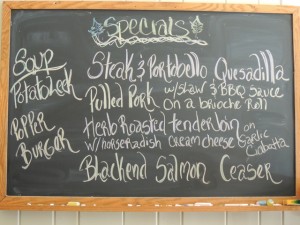 Specials
Soup
Potato Leek
Pepper
Burger
Steak & Portobello Quesadilla
Pulled Pork w/slaw & BBQ Sauce
on a brioche Roll
Herb Roasted tenderloin on
w/horseradish cream cheese Garlic
Ciabatta
Blackend Salmon Ceaser